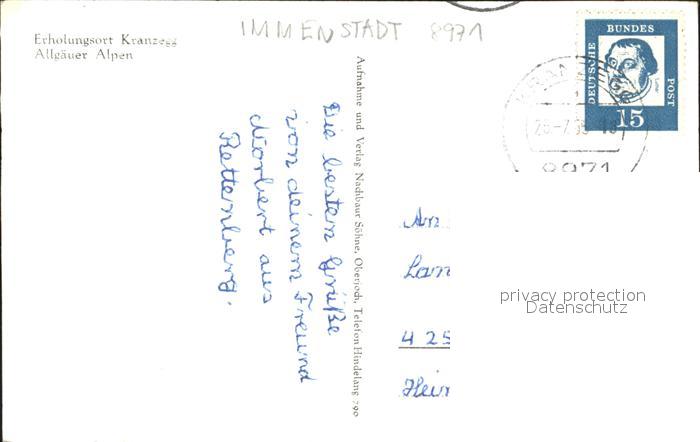 IMMENSTADT 8971
Erholungsort Kranzegg
Allgäuer Alpen
DEUTSCHE BUNDES POST
Luther
15
8971
Die besten Grüße
von deinem Freund
Norbert aus
Rettenberg.
Aufnahme und Verlag Nachbaur Söhne, Oberjoch, Telefon Hindelang 790
An
Lan
4 25
Hein
privacy protection
Datenschutz